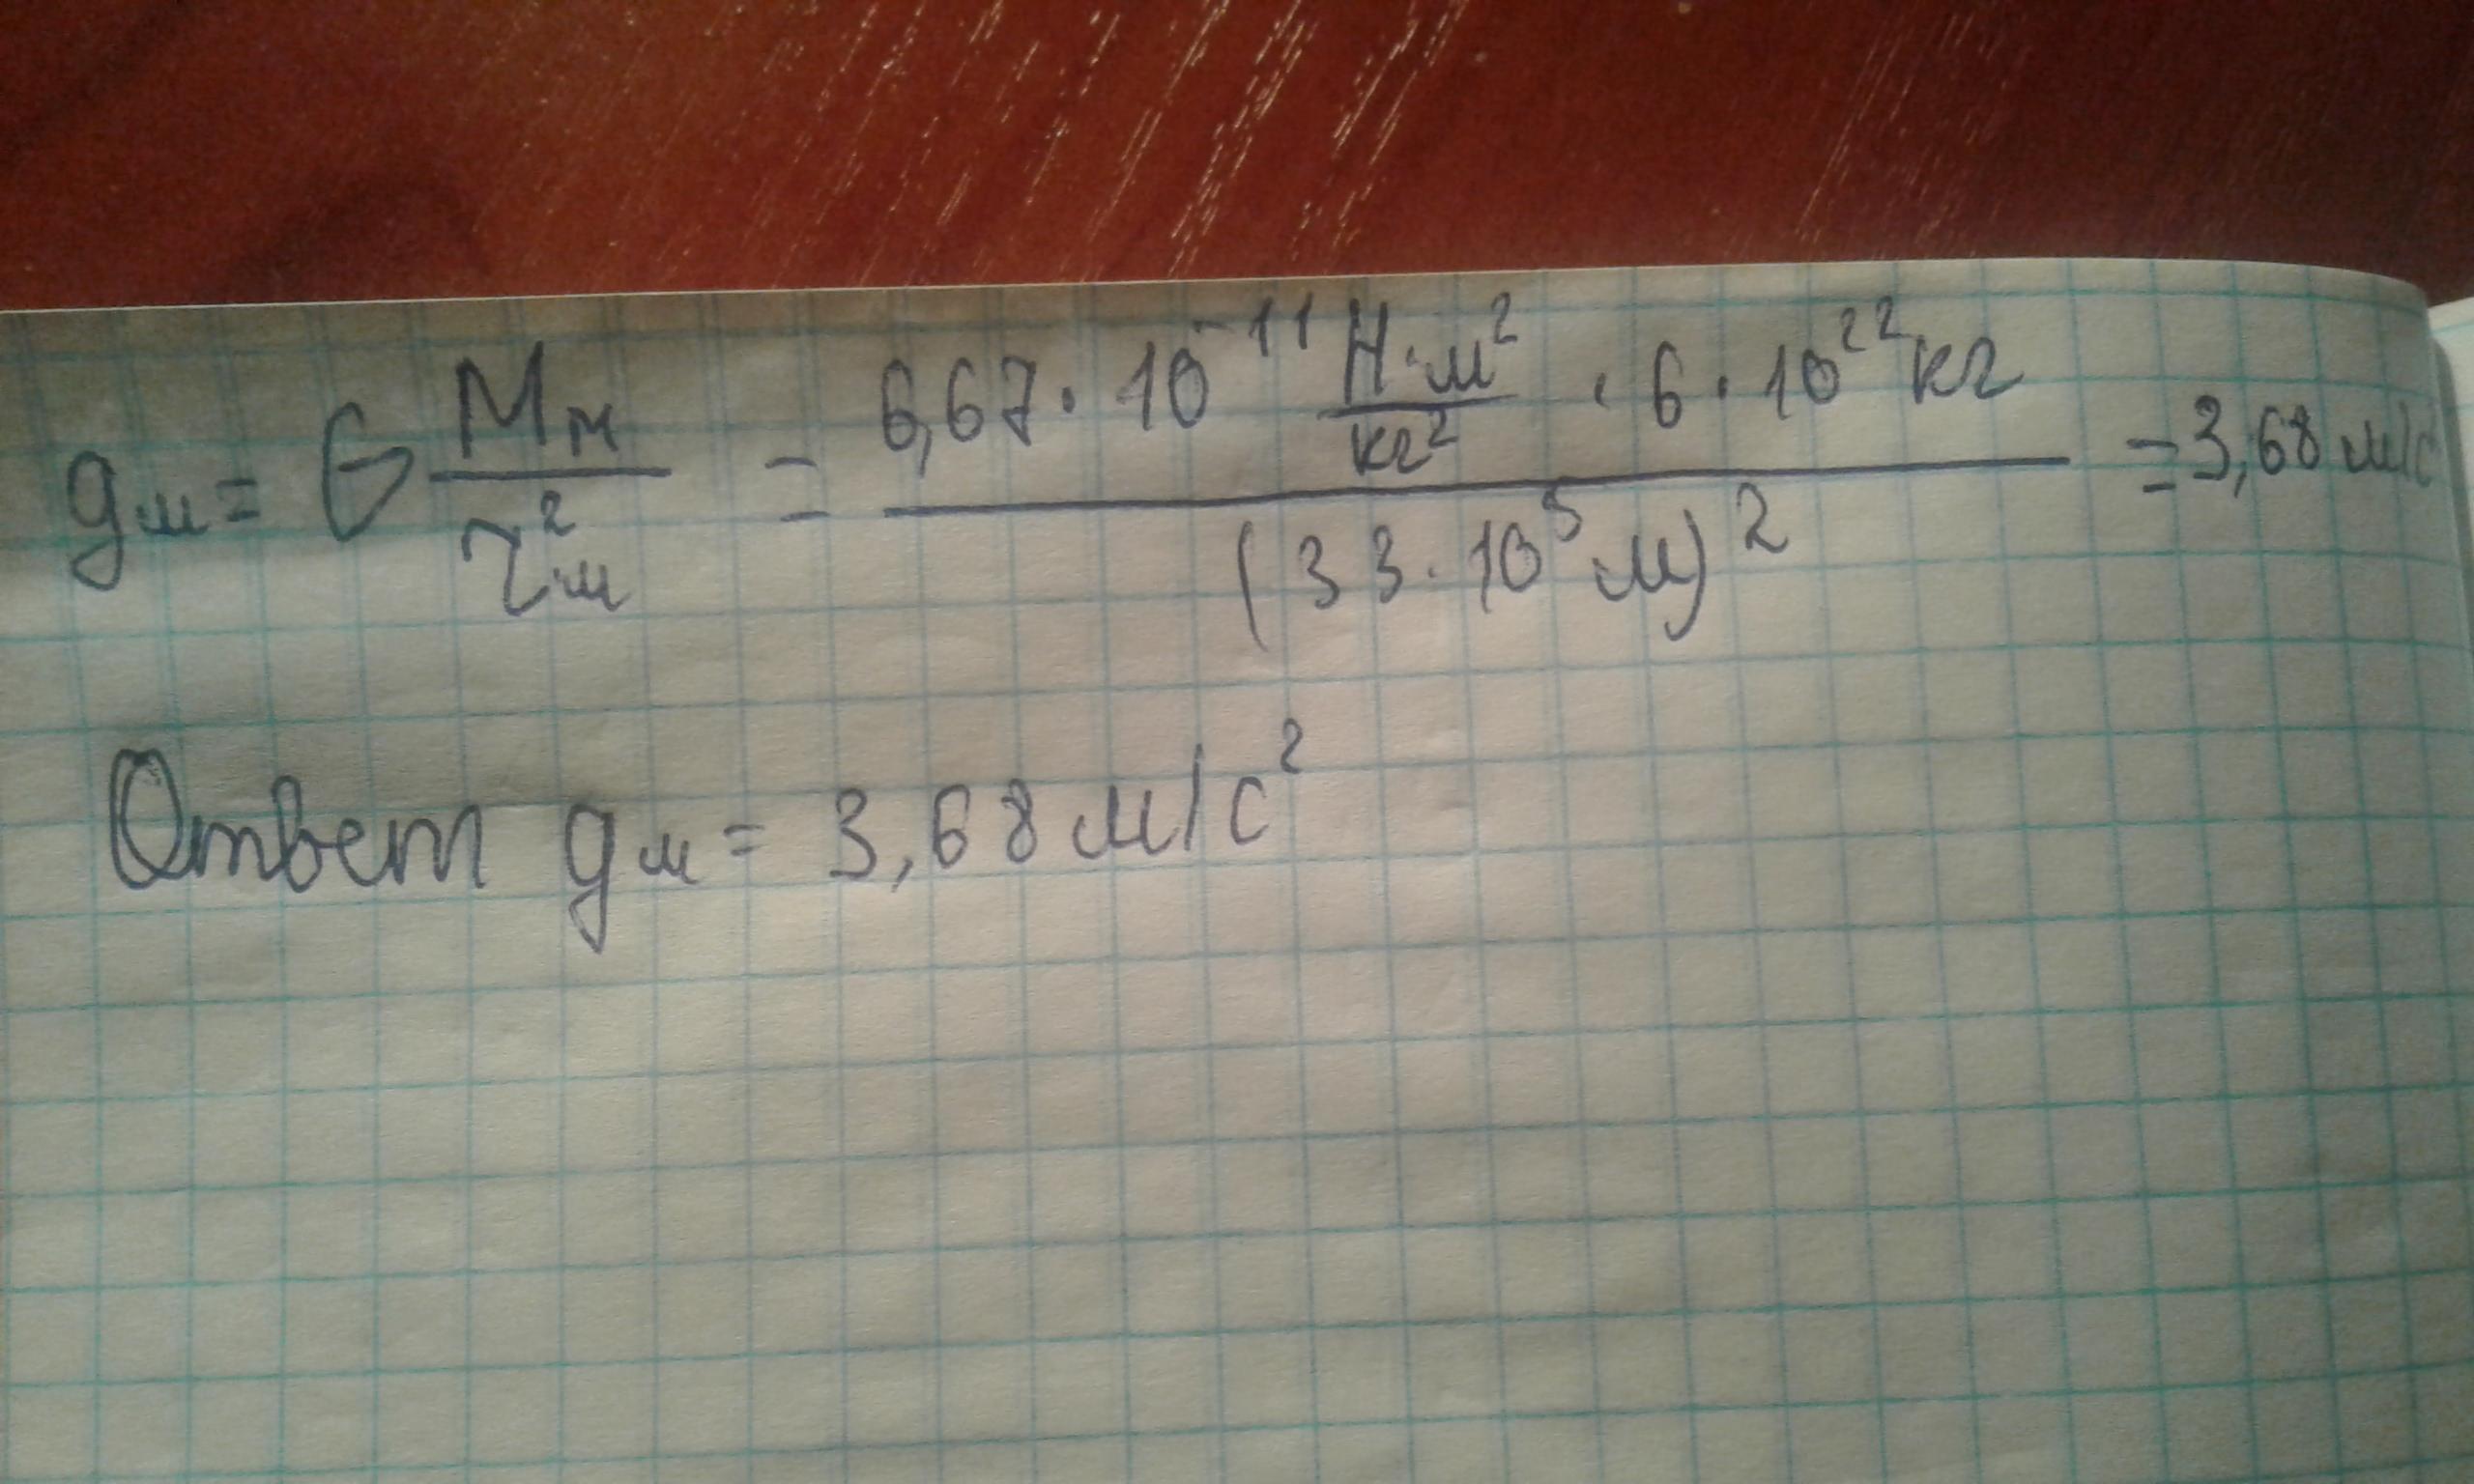 gм = G Mм / rм² = 6,67 · 10⁻¹¹ Н·м²/кг² · 6 · 10²² кг / (33 · 10⁵ м)² = 3,68 м/с
Ответ gм = 3,68 м/с²